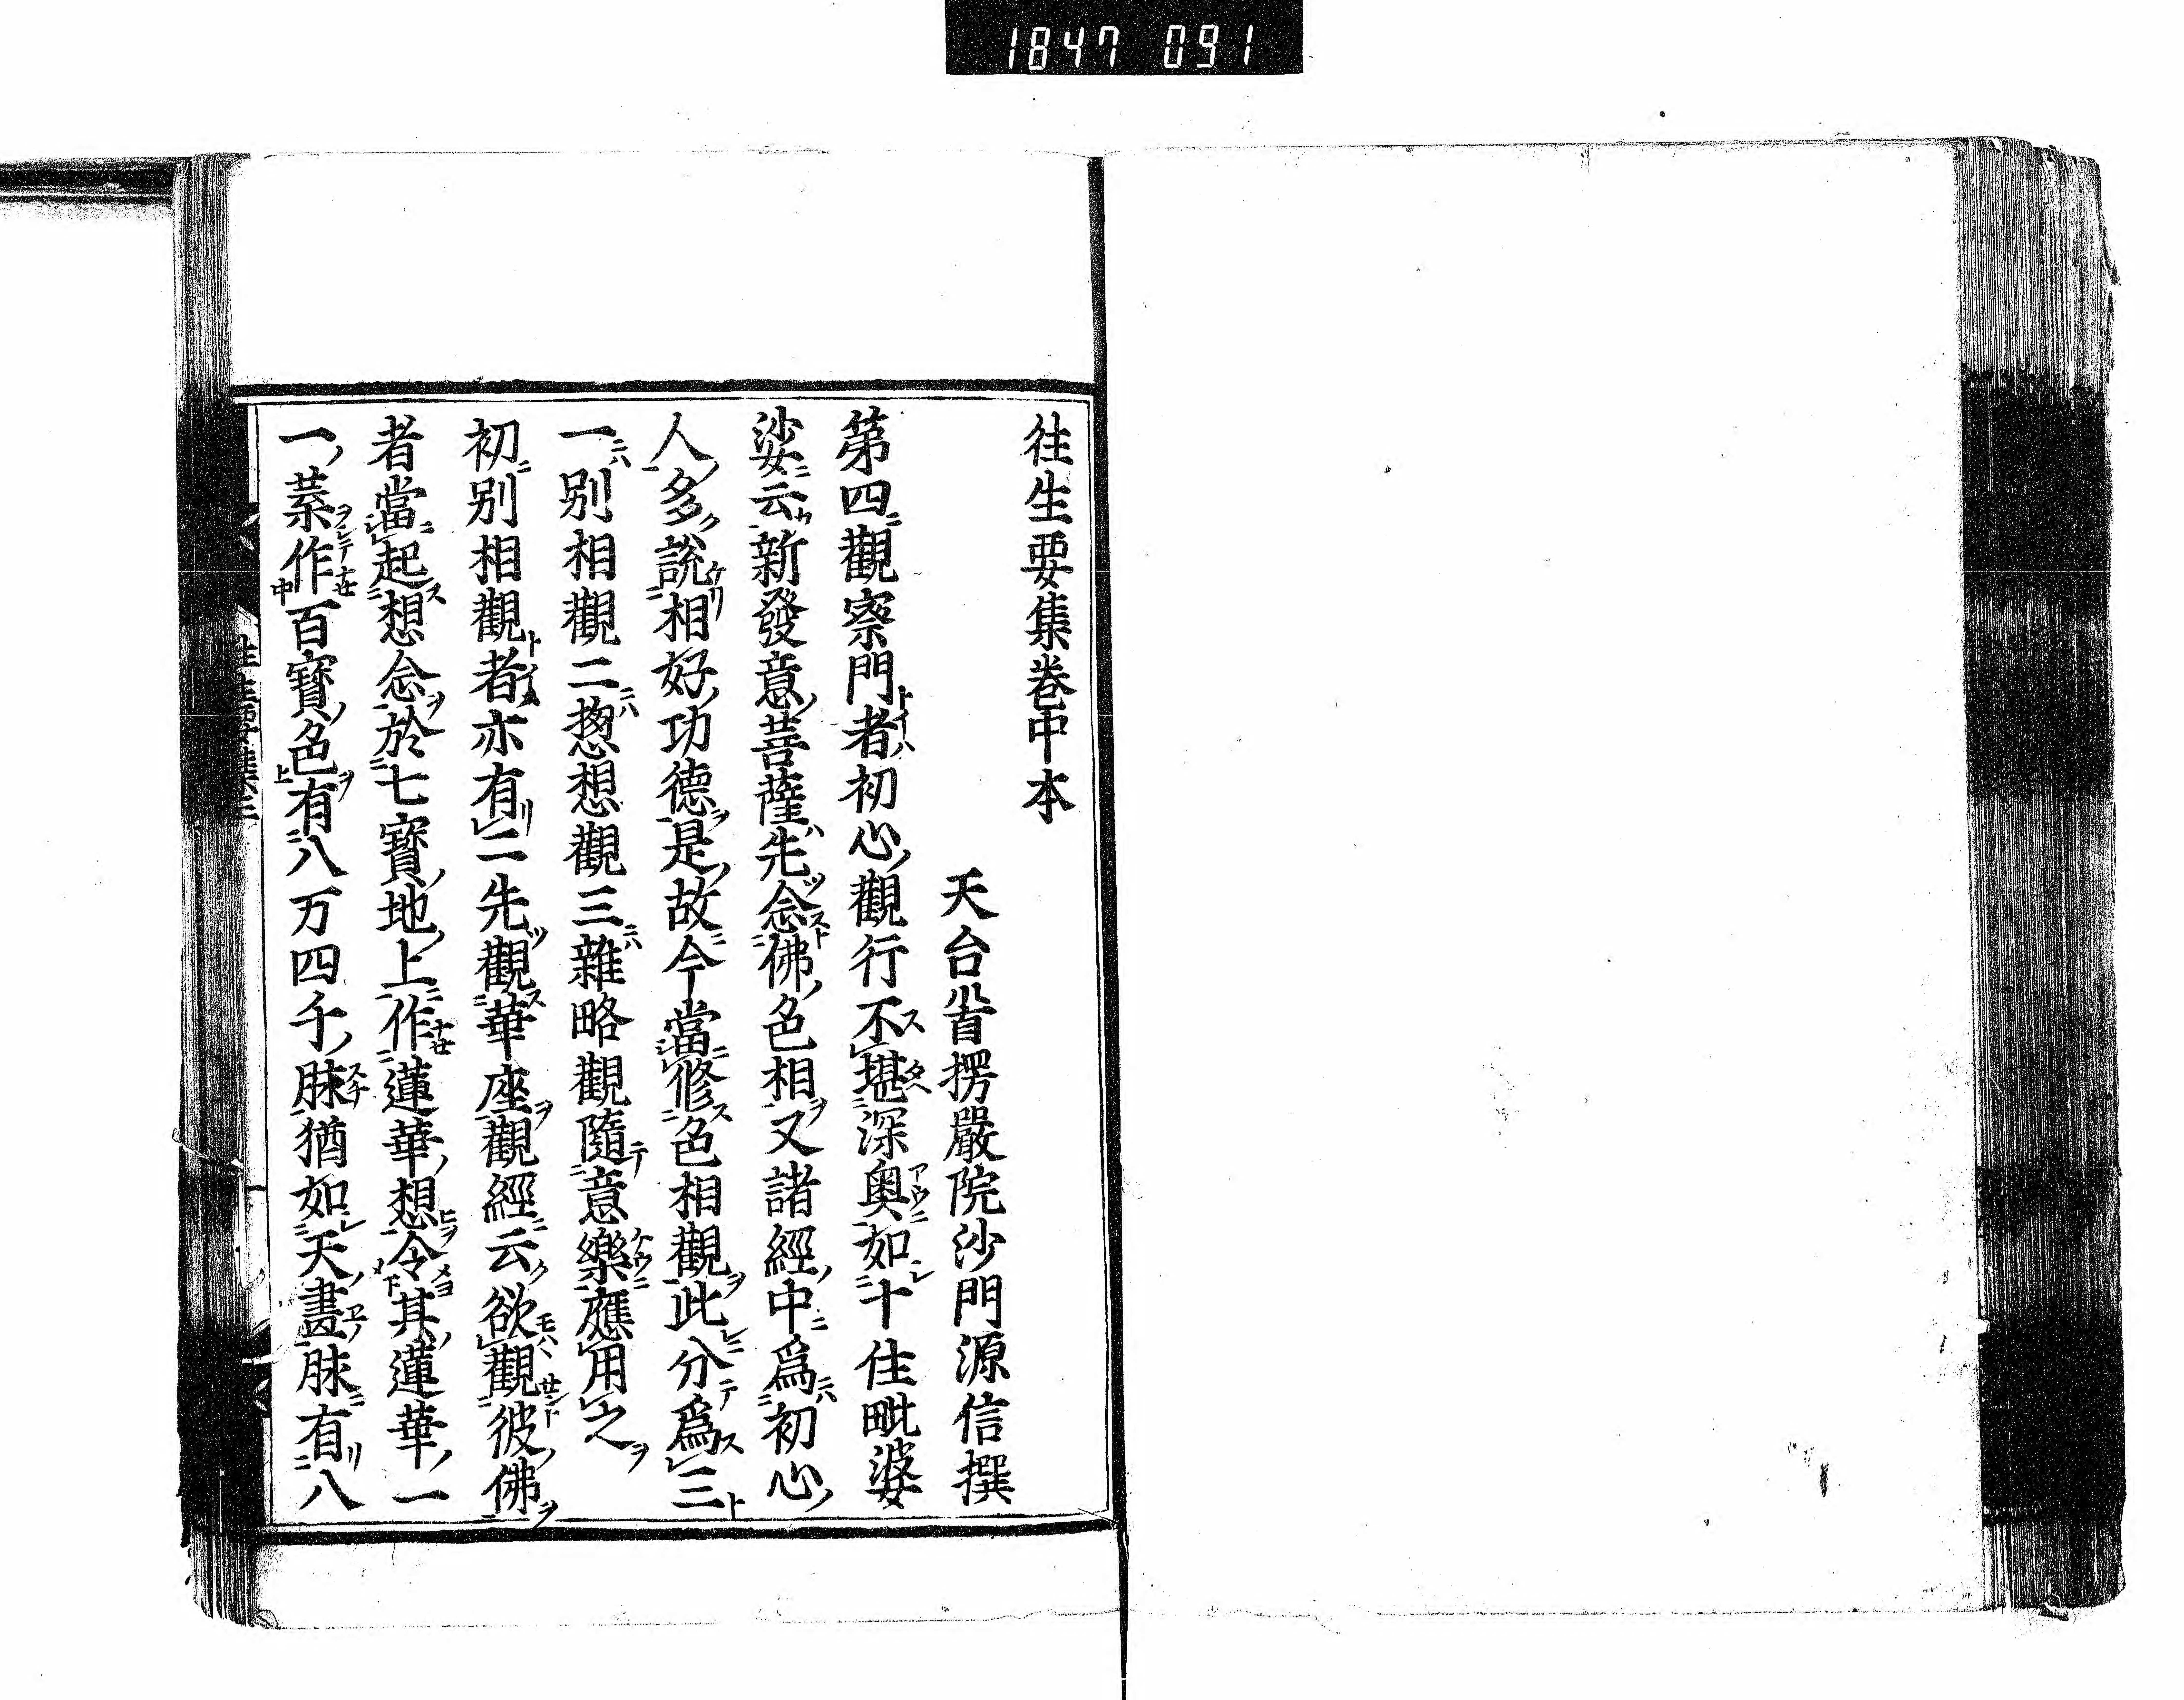 1847 091
往生要集卷中本
天台首楞嚴院沙門源信撰
第四觀察門者初心觀行不堪深奥如十住毗婆
娑云新發意菩薩先念佛色相又諸經中爲初心
人多說相好功德是故今當修色相觀此分爲三
一別相觀二揔想觀三雜略觀隨意樂應用之
初別相觀者亦有二先觀華座觀經云欲觀彼佛
者當起想念於七寶地上作蓮華想令其蓮華一
一葉作百寶色有八万四千脉猶如天畫脉有八